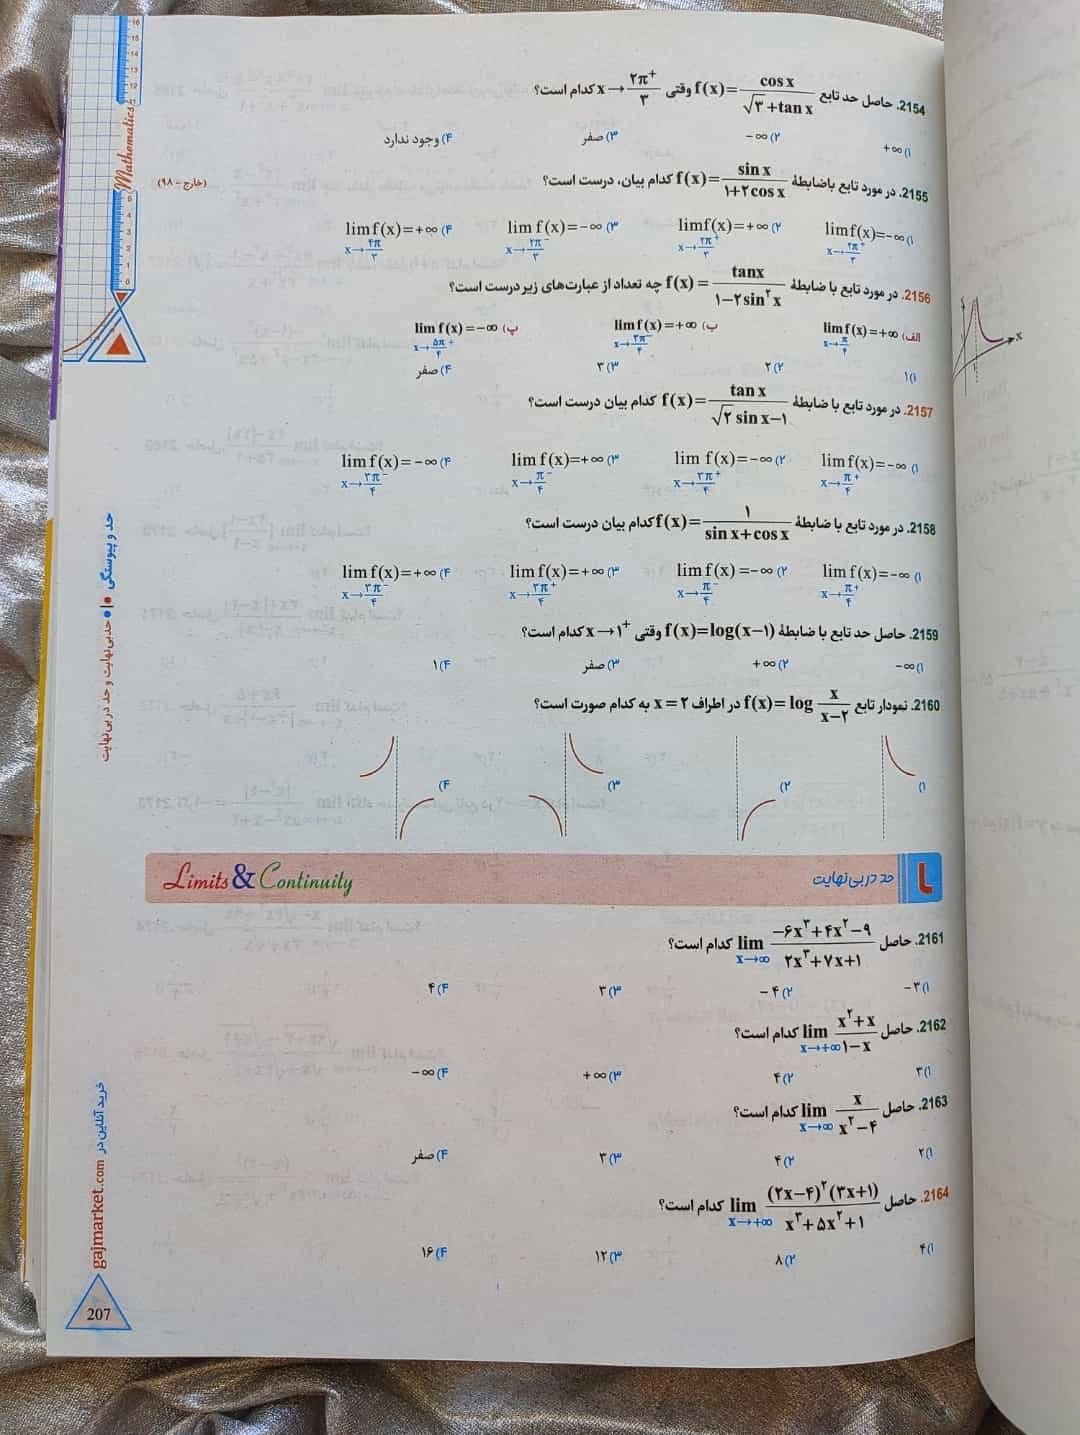 2154. حاصل حد تابع f(x)=cos x/(√۳+tan x) وقتی x→۲π/۳⁺ کدام است؟
۱) +∞ ۲) −∞ ۳) صفر ۴) وجود ندارد
2155. در مورد تابع باضابطهٔ f(x)=sin x/(۱+۲cos x) کدام بیان، درست است؟ (خارج - ۹۸)
۱) lim f(x)=−∞ x→۲π/۳⁺ ۲) lim f(x)=+∞ x→۲π/۳⁺ ۳) lim f(x)=−∞ x→۲π/۳⁻ ۴) lim f(x)=+∞ x→۴π/۳
2156. در مورد تابع با ضابطهٔ f(x)=tanx/(۱−۲sin²x) چه تعداد از عبارت‌های زیر درست است؟
الف) lim f(x)=+∞ x→π/۴ ب) lim f(x)=+∞ x→۳π/۴⁻ پ) lim f(x)=−∞ x→۵π/۴⁺
۱) ۱ ۲) ۲ ۳) ۳ ۴) صفر
2157. در مورد تابع با ضابطهٔ f(x)=tan x/(√۲ sin x−۱) کدام بیان درست است؟
۱) lim f(x)=−∞ x→π/۴⁺ ۲) lim f(x)=−∞ x→۳π/۴⁺ ۳) lim f(x)=+∞ x→π/۴⁻ ۴) lim f(x)=−∞ x→۳π/۴⁻
2158. در مورد تابع با ضابطهٔ f(x)=۱/(sin x+cos x) کدام بیان درست است؟
۱) lim f(x)=−∞ x→π/۴⁺ ۲) lim f(x)=−∞ x→π/۴⁻ ۳) lim f(x)=+∞ x→۳π/۴⁺ ۴) lim f(x)=+∞ x→۳π/۴⁻
2159. حاصل حد تابع با ضابطهٔ f(x)=log(x−۱) وقتی x→۱⁺ کدام است؟
۱) −∞ ۲) +∞ ۳) صفر ۴) ۱
2160. نمودار تابع f(x)=log x/(x−۲) در اطراف x=۲ به کدام صورت است؟
۱) ۲) ۳) ۴)
حد در بی‌نهایت Limits & Continuity
2161. حاصل lim x→∞ (−۶x³+۴x²−۹)/(۲x³+۷x+۱) کدام است؟
۱) −۳ ۲) −۴ ۳) ۳ ۴) ۴
2162. حاصل lim x→+∞ (x²+x)/(۱−x) کدام است؟
۱) ۳ ۲) ۴ ۳) +∞ ۴) −∞
2163. حاصل lim x→∞ x/(x²−۴) کدام است؟
۱) ۲ ۲) ۴ ۳) ۳ ۴) صفر
2164. حاصل lim x→+∞ (۲x−۴)²(۳x+۱)/(x³+۵x²+۱) کدام است؟
۱) ۴ ۲) ۸ ۳) ۱۲ ۴) ۱۶
Mathematics
حد و پیوستگی
حد بی‌نهایت و حد در بی‌نهایت
خرید آنلاین در gajmarket.com
207